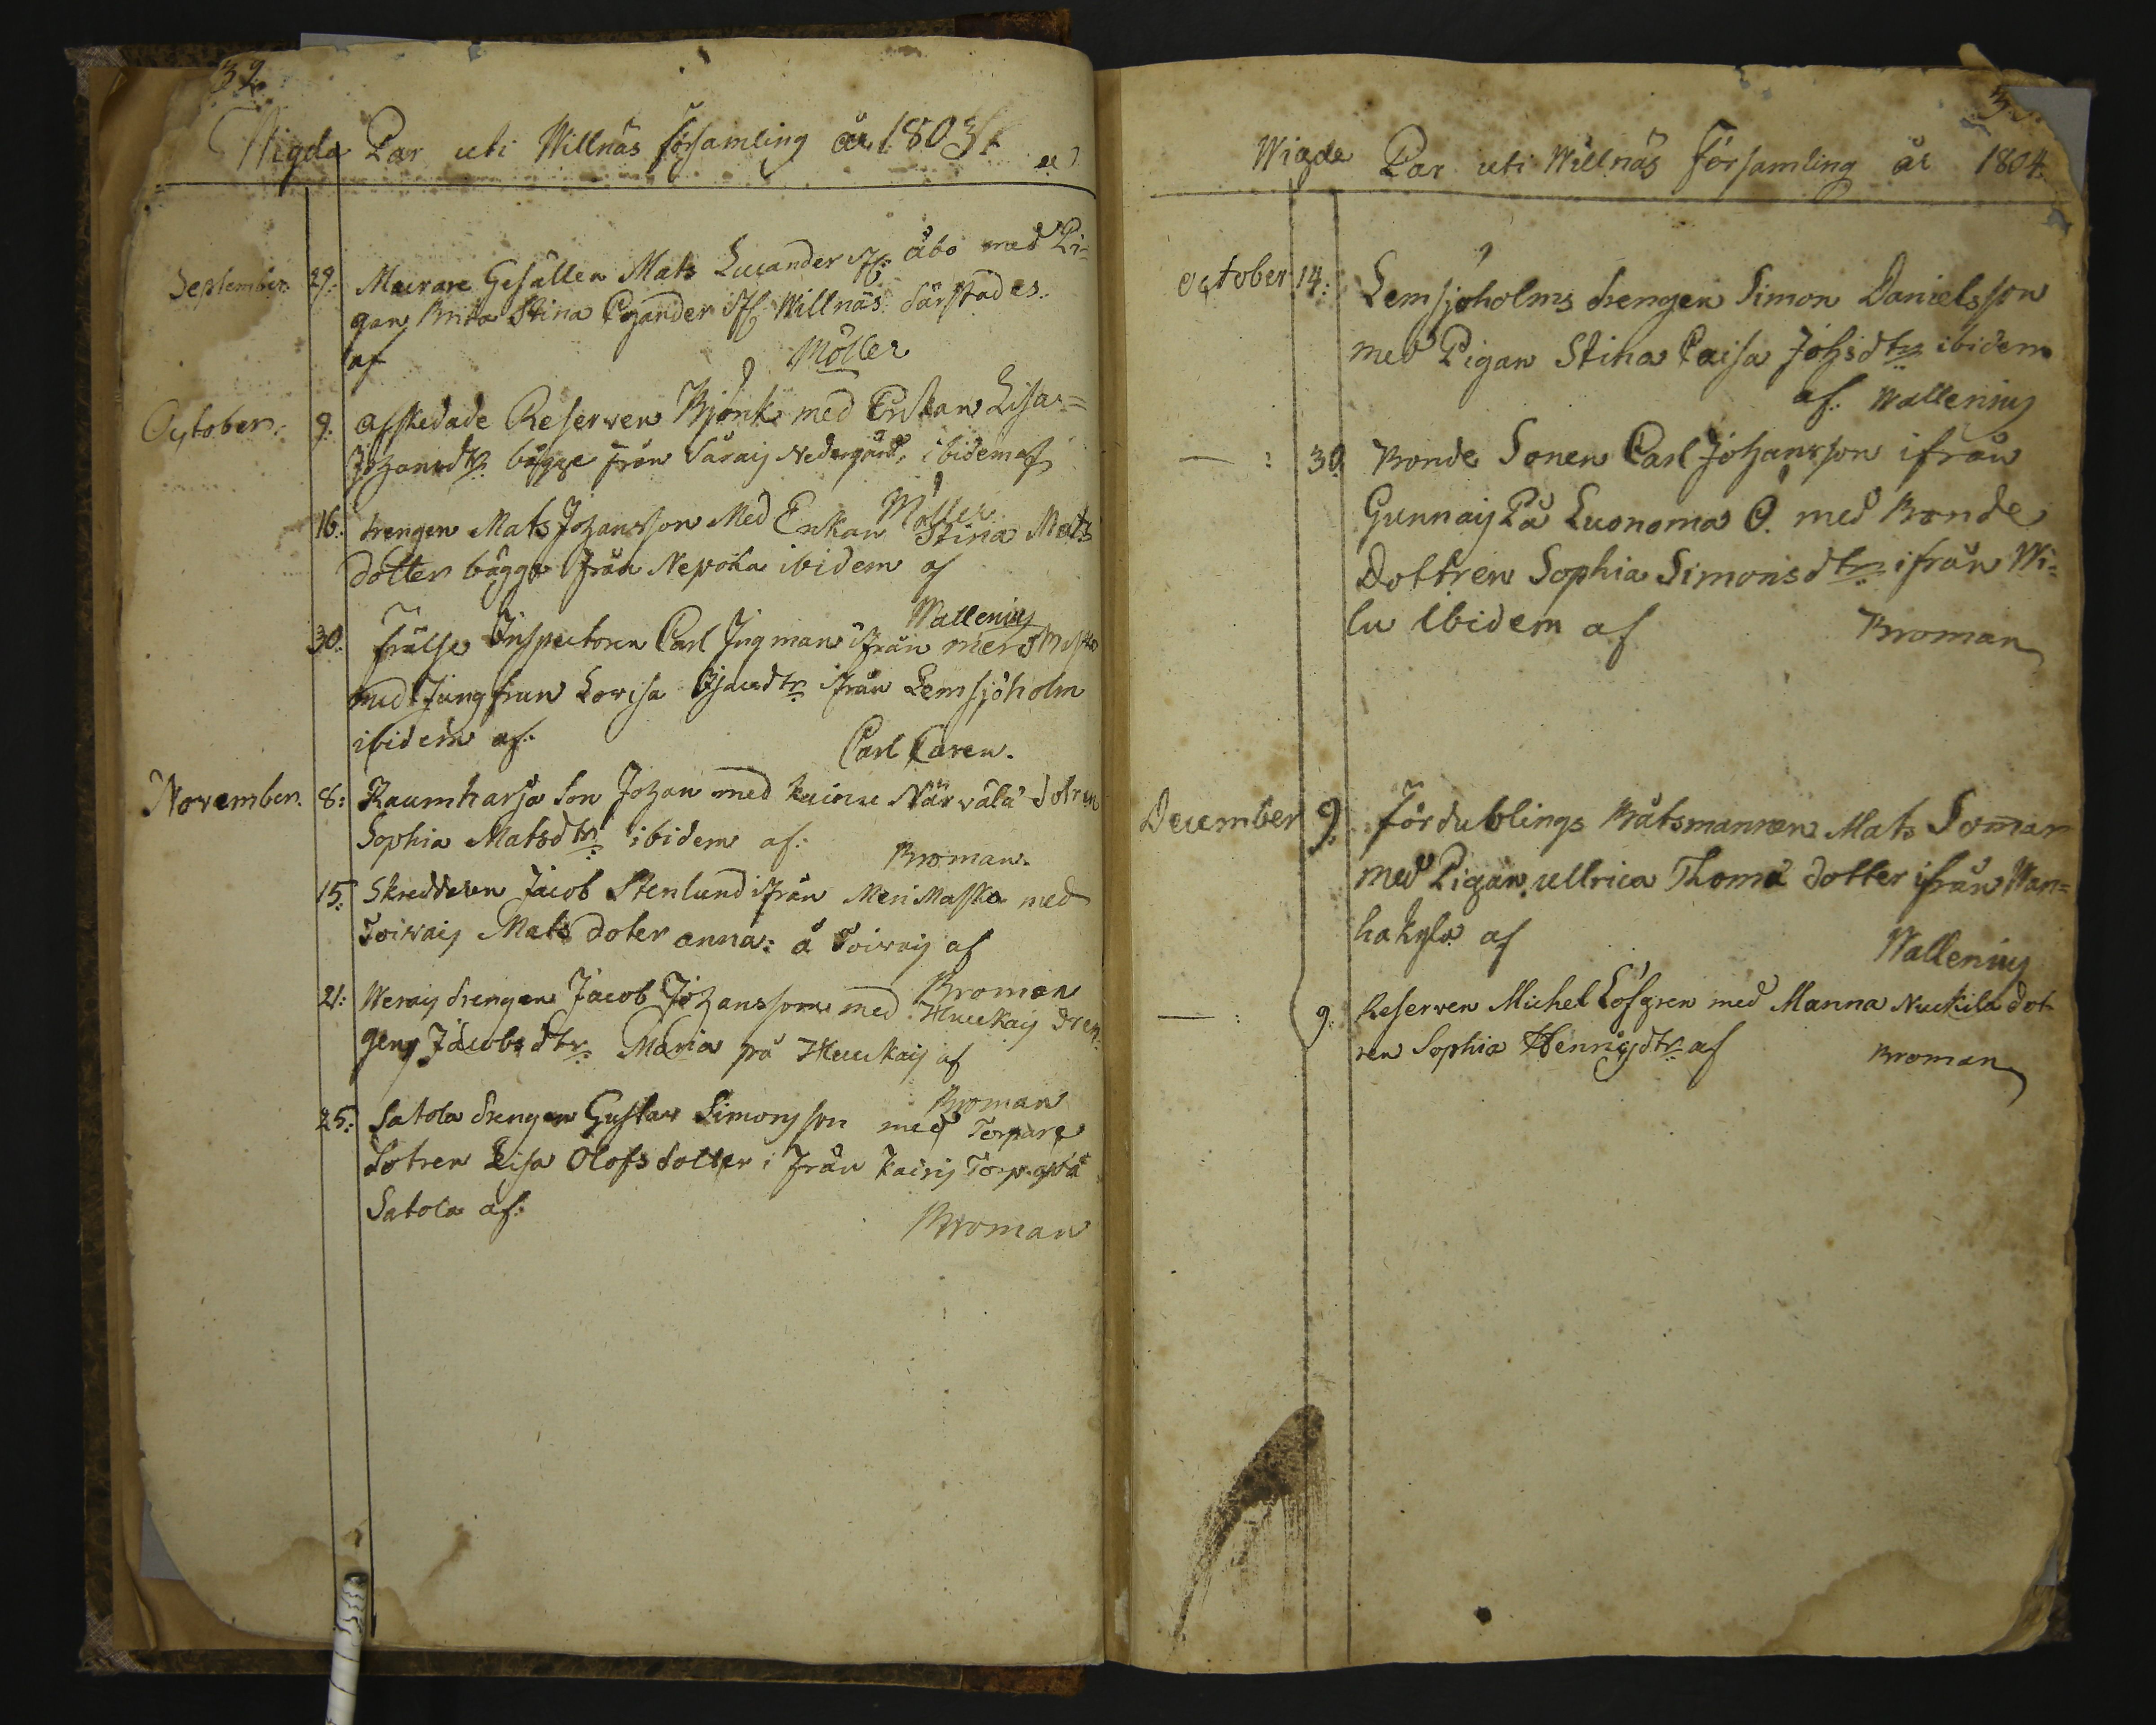 32.
Wigda Par uti Willnäs församling år 1803
September. 29. Murare Gesällen Mats Lucander ifr. Åbo med Pi-
gan Brita Stina Cajander ifr. Willnäs därstädes.
af Möller
October. 9. afskedade Reserven Björk med Enkan Lisa
Johansdtr. bägge från Sarais Nedergård, ibidem af
Möller
16. drengen Mats Johansson Med Enkan Stina Mats
dotter bägge från Nepola ibidem af
Wallenius
30. Frälse Inspectoren Carl Ingman ifrån
med Jungfrun Lovisa ifrån Lemsjöholm
ibidem af. Carl Caren.
November. 8: Raumharja son Johan med kuinu Närvälä dotren
Sophia Matsdtr. ibidem af. Broman.
15. Skreddaren Jacob Stenlund ifrån Meri Masko med
Toivais Mats doter anna: å Toivais af
Broman
21: Werais drengen Jacob Johansson med Huckais dren-
gens Jacobsdtr. Maria på Huckais af
Broman
25: Satola drengen Gustav Simonsson med Torpare
dotren Lisa Olofsdotter ifrån kairis Torp på
Satola af: Broman
Wigde Par uti Willnäs Församling år 1804
October 14: Lemsjöholms drengen Simon Danielsson
med Pigan Stina Caisa Johsdtr. ibidem
af. Wallenius
— : 30. Bonde Sonen Carl Johansson ifrån
Gunnais På Luonoma Ö. med Bonde
Dottren Sophia Simonsdtr. ifrån Wi-
lu Ibidem af Broman
December 9. Fördublings Båtsmannen Mats Somar
med Pigan ullrica Thoma dotter ifrån Wan-
ha kylä af Wallenius
— : 9. Reserven Michel Löfgren med Manna Nuckila dot-
ren Sophia Henrichsdtr. af Broman